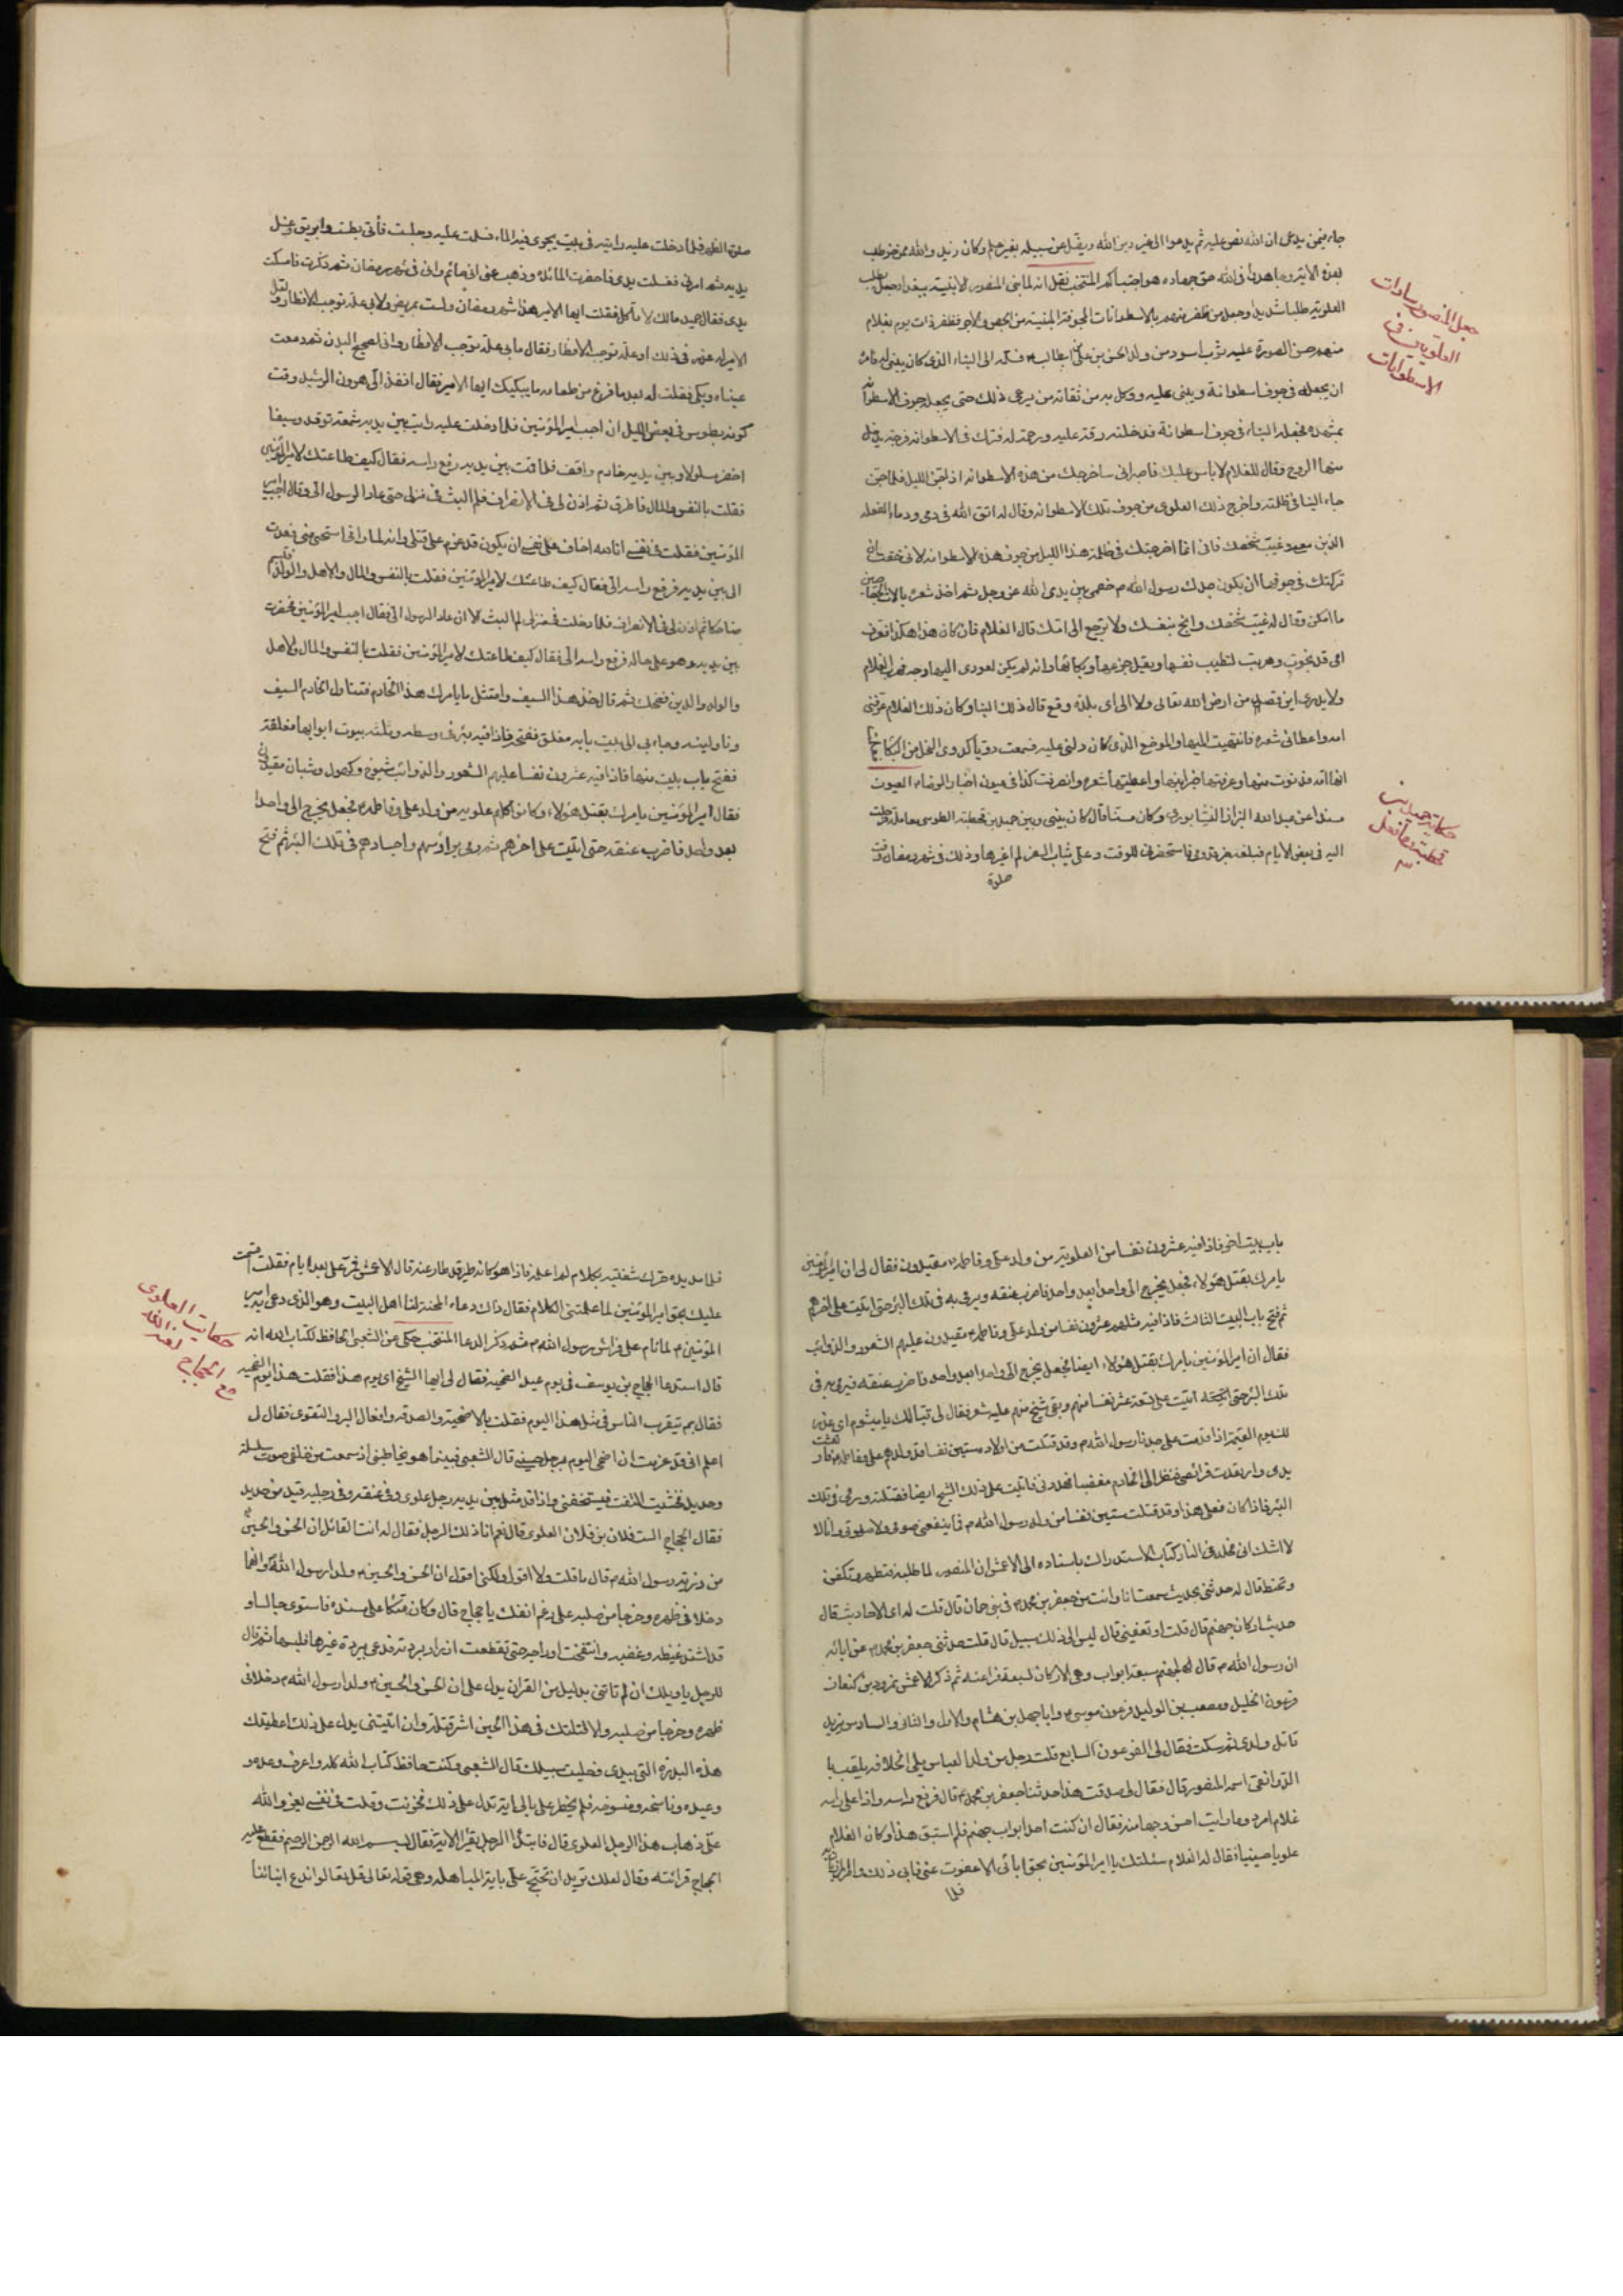 جاء فيمن يدعى ان الله نص عليه ثم يدعوا الى غير دين الله ويضل عن سبيله بغير علم وكان زيد والله ممن خوطب
بهذه الاية وجاهدوا فى الله حق جهاده هو اجتباكم المنتخب نقل انه لما بنى المنصور الابنية ببغداد جعل يطلب
العلوية طلبا شديدا وجعل من ظفر به منهم بالاسطوانات المجوفة المبنية من الجص والاجر فظفر ذات يوم بغلام
منهم حسن الصورة عليه شعر اسود من ولد الحسن بن على بن ابيطالب فسلمه الى البناء الذى كان يبنى له فامره
ان يجعله فى جوف اسطوانة ويبنى عليه ووكل به من ثقاته من يرعى ذلك حتى يجعله جوف الاسطوانة
بمشهده فجعله البناء فى جوف اسطوانة فدخلته رقة عليه ورحمة له فترك فى الاسطوانة فرجة يدخل
منها الروح فقال للغلام لا باس عليك فاصبر فانى ساخرجك من هذه الاسطوانة اذا جن الليل فلما جن
جاء البنا فى ظلمته واخرج ذلك العلوى من جوف تلك الاسطوانة وقال له اتق الله فى دمى ودماء الفعله
الذين معى وغيب شخصك فانى انما اخرجتك فى ظلمة هذا الليل من جوف هذه الاسطوانة لانى خفت ان
تركتك فى جوفها ان يكون جدك رسول الله م خصمى بين يدى الله عز وجل ثم اخذ شعره بالات الجصاصين
ما امكن وقال له غيب شخصك وانج بنفسك ولا ترجع الى امك قال الغلام فان كان هذا هكذا فعرف
امى قد نجوت وهربت لتطيب نفسها ويقل جزعها وبكائها وانه لم يكن لعودى اليها وجه فهرب الغلام
ولا يدرى اين قصد من ارض الله تعالى ولا الى اى بلدة وقع قال ذلك البنا وكان ذلك الغلام عرفنى
امه واعطانى شعره فانتهيت اليها فى الموضع الذى كان دلنى عليه فسمعت دويا كدوى النحل من البكاء فعلمت
انها امه فدنوت منها وعرفتها خبر ابنها واعطيتها شعره وانصرفت كذا فى عيون اخبار الرضاء العيون
مسندا عن عبد الله البزاز النيشابورى وكان مسنا قال كان بينى وبين حميد بن قحطبة الطوسى معاملة فرحلت
اليه فى بعض الايام فبلغه خبر قدومى فاستحضرنى للوقت وعلى ثياب السفر لم اغيرها وذلك فى شهر رمضان وقت
صلوة
جعل المنصور سادات
العلويات فى
الاسطوانات
حكاية حميد بن
قحطبة وما فعل
به
صلوة الظهر فلما دخلت عليه رايته فى بيت يجرى فيه الماء فسلمت عليه وجلست فأتى بطست وابريق وغسل
يديه ثم امرنى فغسلت يدى فاحضرت المائدة وذهب عنى انى صائم وانى فى شهر رمضان ثم ذكرت فامسكت
يدى فقال حميد مالك لا تأكل فقلت ايها الامير هذا شهر رمضان ولست بمريض ولا بى علة توجب الافطار ولعل
الامير له عذر فى ذلك او علة توجب الافطار فقال ما بى علة توجب الافطار وانى لصحيح البدن ثم دمعت
عيناه وبكى فقلت له بعد ما فرغ من طعامه ما يبكيك ايها الامير فقال انفذ الى هرون الرشيد وقت
كونه بطوس فى بعض الليل ان اجب امير المؤمنين فلما دخلت عليه رايت بين يديه شمعة توقد وسيفا
اخضر مسلولا وبين يديه خادم واقف فلما قمت بين يديه رفع راسه فقال كيف طاعتك لامير المؤمنين
فقلت بالنفس والمال فاطرق ثم اذن لى فى الانصراف فلم البث فى منزلى حتى عاد الرسول الى وقال اجب امير
المؤمنين فقلت فى نفسى انا لله اخاف على نفسى ان يكون قد عزم على قتلى وانه لما رانى استحيى منى فعدت
الى بين يديه فرفع راسه الى فقال كيف طاعتك لامير المؤمنين فقلت بالنفس والمال والاهل والولد فتبسم
ضاحكا ثم اذن لى فى الانصراف فلما دخلت فى منزلى لم البث الا ان عاد الرسول الى فقال اجب امير المؤمنين فحضرت
بين يديه وهو على حاله فرفع راسه الى فقال كيف طاعتك لامير المؤمنين فقلت بالنفس والمال والاهل
والولد والدين فضحك ثم قال خذ هذا السيف وامتثل ما يامرك هذا الخادم فتناول الخادم السيف
وناولنيه وجاء بى الى بيت بابه مغلق ففتحه فاذا فيه بئر فى وسطه وثلثة بيوت ابوابها مغلقة
ففتح باب بيت منها فاذا فيه عشرون نفسا عليهم الشعور والذوائب شيوخ وكهول وشبان مقيدون
فقال امير المؤمنين يامرك بقتل هؤلاء وكانوا كلهم علوية من ولد على وفاطمه فجعل يخرج الى واحدا
بعد واحد فاضرب عنقه حتى اتيت على اخرهم ثم رمى برؤسهم واجسادهم فى تلك البئر ثم فتح
باب بيت اخر فاذا فيه عشرون نفسا من العلوية من ولد على وفاطمه مقيدون فقال لى ان امير المؤمنين
يامرك بقتل هؤلاء فجعل يخرج الى واحدا بعد واحد فاضرب عنقه ويرمى به فى تلك البئر حتى اتيت على اخرهم
ثم فتح باب البيت الثالث فاذا فيه مثلهم عشرون نفسا من ولد على وفاطمه مقيدون عليهم الشعور والذوائب
فقال ان امير المؤمنين يامرك بقتل هؤلاء ايضا فجعل يخرج الى واحدا بعد واحد فاضرب عنقه فيرمى به فى
تلك البئر حتى اتيت على تسعة عشر نفسا منهم وبقى شيخ منهم عليه شعر فقال لى تبا لك يا ميشوم اى عذر
لك يوم القيمة اذا قدمت على جدنا رسول الله م وقد قتلت من اولاده ستين نفسا قد ولدهم على وفاطمه فارتعشت
يدى وارتعدت فرائصى فنظر الى الخادم مغضبا فهددنى فاتيت على ذلك الشيخ ايضا فقتلته ورمى فى تلك
البئر فاذا كان فعلى هذا وقد قتلت ستين نفسا من ولد رسول الله م فما ينفعنى صومى ولا صلوتى وانا لا
لا اشك انى مخلد فى النار كتاب الاستدراك باسناده الى الاعمش ان المنصور لما طلبه فتطهر وتكفن
وتحنط قال له حدثنى بحديث سمعته انا وانت من جعفر بن محمد فى بنى حمان قال قلت له اى الاحاديث قال
حديث اركان جهنم قال قلت او تعفينى قال ليس الى ذلك سبيل قال قلت حدثنى جعفر بن محمد عن ابائه
ان رسول الله م قال لجهنم سبعة ابواب وهى الاركان لسبعة فراعنه ثم ذكر الاعمش نمرود بن كنعان
فرعون الخليل ومصعب بن الوليد فرعون موسى وابا جهل بن هشام والاول والثانى والسادس يزيد
قاتل ولدى ثم سكت فقال لى الفرعون السابع قلت رجل من ولد العباس يلى الخلافه يلقب با
الدوانقى اسمه المنصور قال فقال لى صدقت هذا حدثنا جعفر بن محمد قال فرفع راسه واذا على راسه
غلام امرد وما رايت احسن وجها منه فقال ان كنت احد ابواب جهنم فلم استبق هذا وكان الغلام
علويا حسينيا فقال له الغلام سئلتك يا امير المؤمنين بحق ابائى الا عفوت عنى فابى ذلك وامر المرزبان به
فلما
فلما مد يده حرك شفتيه بكلام لم اعلمه فاذا هو كانه طير قد طار عنه قال الاعمش فمر على بعد ايام فقلت اقسمت
عليك بحق امير المؤمنين لما علمتنى الكلام فقال ذاك دعاء المحنة لنا اهل البيت وهو الذى دعى به امير
المؤمنين م لما نام على فراش رسول الله م ثم ذكر الدعا المنتخب حكى عن الشعبى الحافظ لكتاب الله انه
قال استدعا الحجاج بن يوسف فى يوم عيد الضحيه فقال لى ايها الشيخ اى يوم هذا فقلت هذا يوم الضحيه
فقال بم يتقرب الناس فى مثل هذا اليوم فقلت بالاضحية والصدقه وافعال البر والتقوى فقال ل
اعلم انى قد عزمت ان اضحى اليوم برجل حسينى قال الشعبى فبينما هو يخاطبنى اذ سمعت من خلفى صوت سلسلة
وحديد فخشيت التفت فيستخفنى واذا قد مثل بين يديه رجل علوى وفى عنقه وفى رجليه قيد من حديد
فقال الحجاج الست فلان بن فلان العلوى قال نعم انا ذلك الرجل فقال له انت القائل ان الحسن والحسين
من ذرية رسول الله م قال ما قلت ولا اقول ولكنى اقول ان الحسن والحسين ولدا رسول الله وانهما
دخلا فى ظهره وخرجا من صلبه على رغم انفك يا حجاج قال وكان متكئا على مسنده فاستوى جالسا و
قد اشتد غيظه وغضبه وانتفخت اوداجه حتى تقطعت ازرار بردته فدعى ببردة غيرها فلبسها ثم قال
للرجل يا ويلك ان لم تاتنى بدليل من القران يدل على ان الحسن والحسين ولدا رسول الله م دخلا فى
ظهره وخرجا من صلبه والا قتلتك فى هذا الحين اشر قتلة وان اتيتنى بدل على ذلك اعطيتك
هذه البدرة التى بيدى وخليت سبيلك قال الشعبى وكنت حافظ كتاب الله كله واعرف وعده و
وعيده وناسخه ومنسوخه فلم يخطر على بالى اية تدل على ذلك فحزنت وقلت فى نفسى يعز والله
على ذهاب هذا الرجل العلوى قال فابتدا الرجل يقرا الاية فقال بسم الله الرحمن الرحيم فقطع عليه
الحجاج قرائته وقال لعلك تريد ان تحتج على باية المباهله وهى قوله تعالى قل تعالوا ندع ابنائنا
حكايت العلوى
مع الحجاج لعنه الله